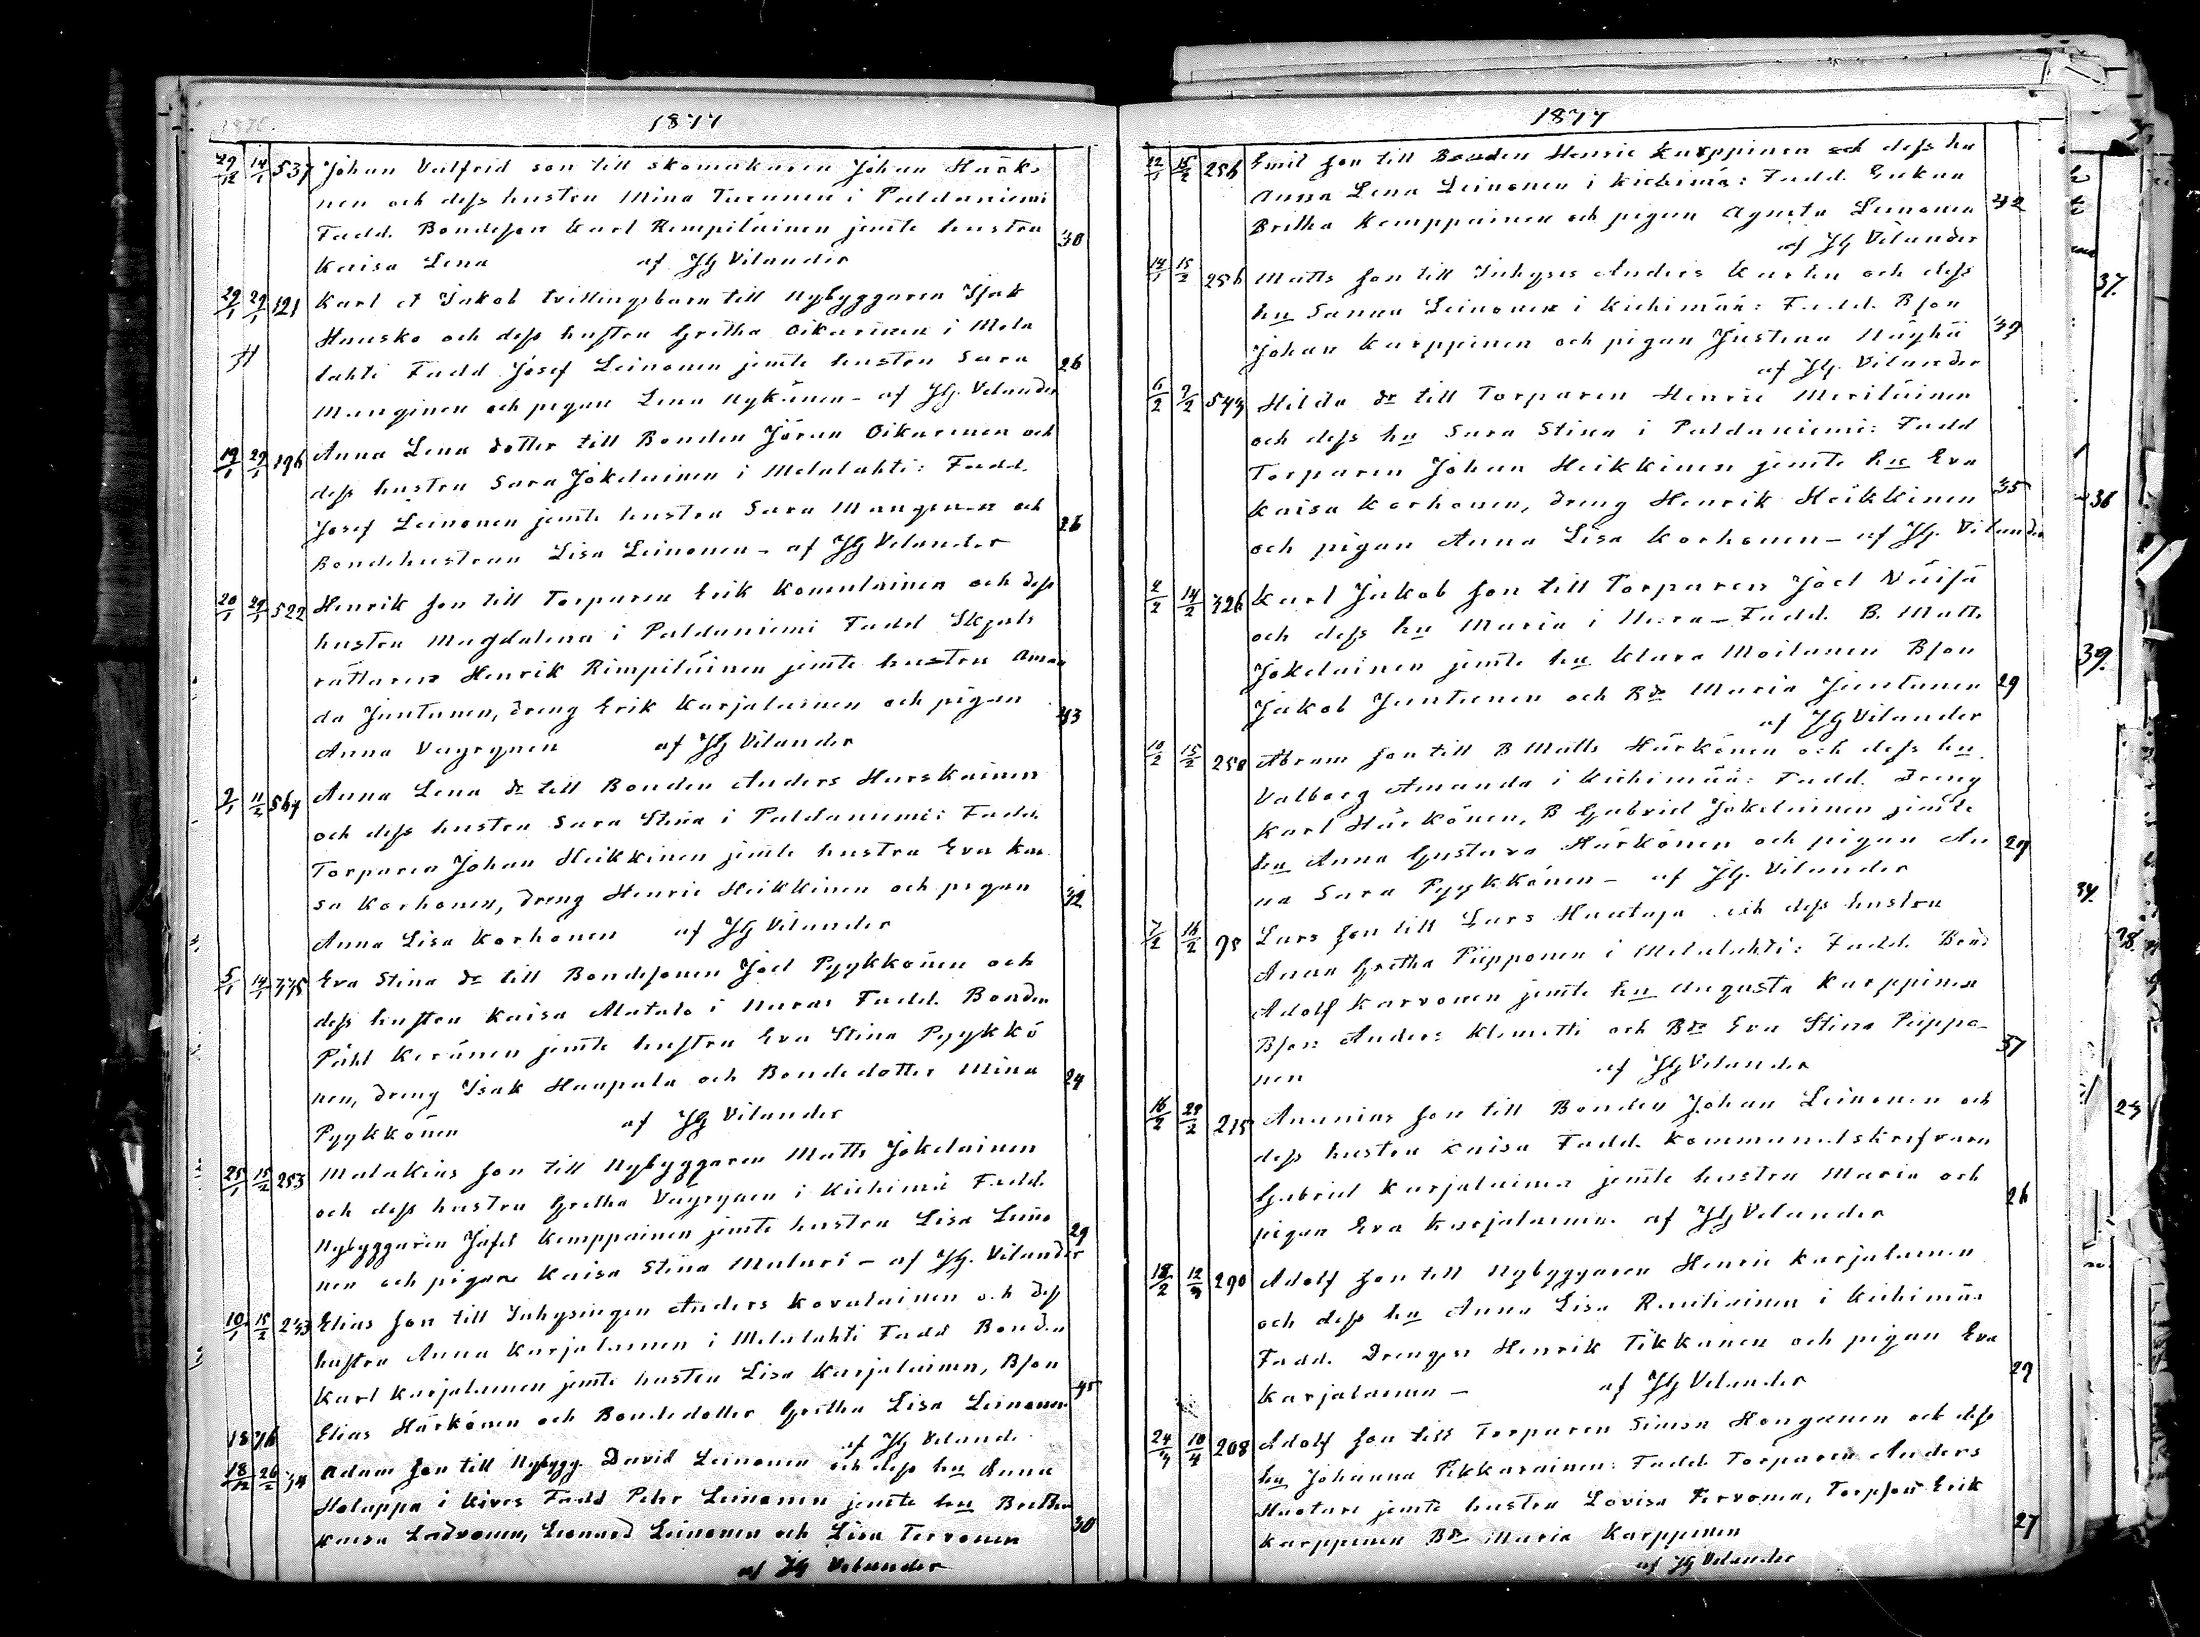 1876. 1877
29/12 14/1 537 Johan Valfrid son till skomakaren Johan Härkö
nen och dess hustru Mina Turunen i Paldaniemi
Fadd. Bondeson Karl Rimpiläinen jemte hustru 30
Kaisa Lena af JG Vilander
29/1 29/1 121 Karl et Jakob tvillingsbarn till Nybyggaren Isak
Hausko och dess hustru Gretha Oikarinen i Mela
lahti Fadd Josef Leinonen jemte hustru Sara 26
Manginen och pigan Lena Nykänen - af JG. Vilander
19/1 29/1 196 Anna Lena dotter till Bonden Jöran Oikarinen och
dess hustru Sara Jokelainen i Melalahti: Fadd.
Josef Leinonen jemte hustru Sara Manginen och 26
Bondehustrun Lisa Leinonen - af JG Vilander
20/1 29/1 522 Henrik son till Torparen Erik Komulainen och dess
hustru Magdalena i Paldaniemi Fadd Skjuts
rättaren Henrik Rimpiläinen jemte hustru Aman
da Juntunen, dreng Erik Karjalainen och pigan 43
Anna Väyrynen af JG Vilander
2/1 11/2 564 Anna Lena dr till Bonden Anders Hurskainen
och dess hustru Sara Stina i Paldaniemi: Fadd.
Torparen Johan Heikkinen jemte hustru Eva Kai
sa Korhonen, dreng Henric Heikkinen och pigan 32
Anna Lisa Korhonen af JG Vilander
5/1 14/1 375 Eva Stina dr till Bondesonen Joel Pyykkönen och
dess hustru Kaisa Alatalo i Uura: Fadd. Bonden
Påhl Keränen jemte hustru Eva Stina Pyykkö
nen, dreng Isak Haapala och Bondedotter Mina 24
Pyykkönen af JG Vilander
25/1 15/2 253 Malakias son till Nybyggaren Matts Jokelainen
och dess hustru Gretha Väyrynen i Kiehimä Fadd.
Nybyggaren Jafet Kemppainen jemte hustru Lisa Leino 29
nen och pigan Kaisa Stina Mulari - af JG. Vilander
10/1 15/2 233 Elias son till Inhysingen Anders Kovalainen och dess
hustru Anna Karjalainen i Melalahti Fadd Bonden
Karl Karjalainen jemte hustru Lisa Karjalainen, Bson 45
Elias Härkönen och Bondedotter Gretha Lisa Leinonen
1876 af JG Viland.
18/12 26/2 34 Adam son till Nybygg. David Leinonen och dess hu Anna
Holappa i Kives Fadd Pehr Leinonen jemte hu Britha
Kaisa Ladvonen, Leonard Leinonen och Lisa Tervonen 30
af JG Vilander
1877
22/1 15/2 256 Emil son till Bonden Henric Karppinen och dess hu
Anna Lena Leinonen i Kiehimä: Fadd. Enkan
Britha Kemppainen och pigan Agneta Leinonen 42
af JG Vilander
14/1 15/2 256 Matts son till Inhyses Anders Karhu och dess
hu Sanna Leinonen i Kiehimää: Fadd. Bson
Johan Karppinen och pigan Justina Näyhä 39
af JG. Vilander
6/2 9/2 543 Hilda dr till Torparen Henric Meriläinen
och dess hu Sara Stina i Paldaniemi: Fadd
Torparen Johan Heikkinen jemte hu Eva
Kaisa Korhonen, dreng Henrik Heikkinen 35
och pigan Anna Lisa Korhonen - af JG. Vilander
2/2 14/2 326 Karl Jakob son till Torparen Joel Väisä
och dess hu Maria i Uura - Fadd. B. Matts
Jokelainen jemte hu Klara Moilanen Bson
Jakob Juntunen och Bdr Maria Juntunen 29
af JG Vilander
10/2 15/2 250 Abram son till B Matts Härkönen och dess hu.
Valborg Amanda i Kiehimää: Fadd. Dreng
Karl Härkönen, B Gabriel Jokelainen jemte
hu Anna Gustava Härkönen och pigan An 29
na Sara Pyykkönen - af JG. Vilander
7/2 16/2 95 Lars son till Lars Huotaja och dess hustru
Anna Gretha Piipponen i Melalahti: Fadd. Bond
Adolf Karvonen jemte hu Augusta Karppinen
Bson Anders Klemetti och Bdr Eva Stina Piippo- 37
nen af JG Vilander
16/2 28/2 215 Ananias son till Bonden Johan Leinonen och
dess hustru Kaisa Fadd. Kommunalskrifvaren
Gabriel Karjalainen jemte hustru Maria och 26
pigan Eva Karjalainen. af JG Vilander
18/2 12/3 290 Adolf son till Nybyggaren Henric Karjalainen
och dess hu Anna Lisa Rautiainen i Kiehimää
Fadd. Drengen Henrik Tikkanen och pigan Eva
Karjalainen - af JG Vilander 29
24/3 10/4 208 Adolf son till Torparen Simon Honganen och dess
hu Johanna Pikkarainen: Fadd. Torparen Anders
Huotari jemte hustru Lovisa Tervonen, Torpson Erik
Karppinen Bdr Maria Karppinen 27
af JG Vilander
37.
36
39.
34.
28.
23